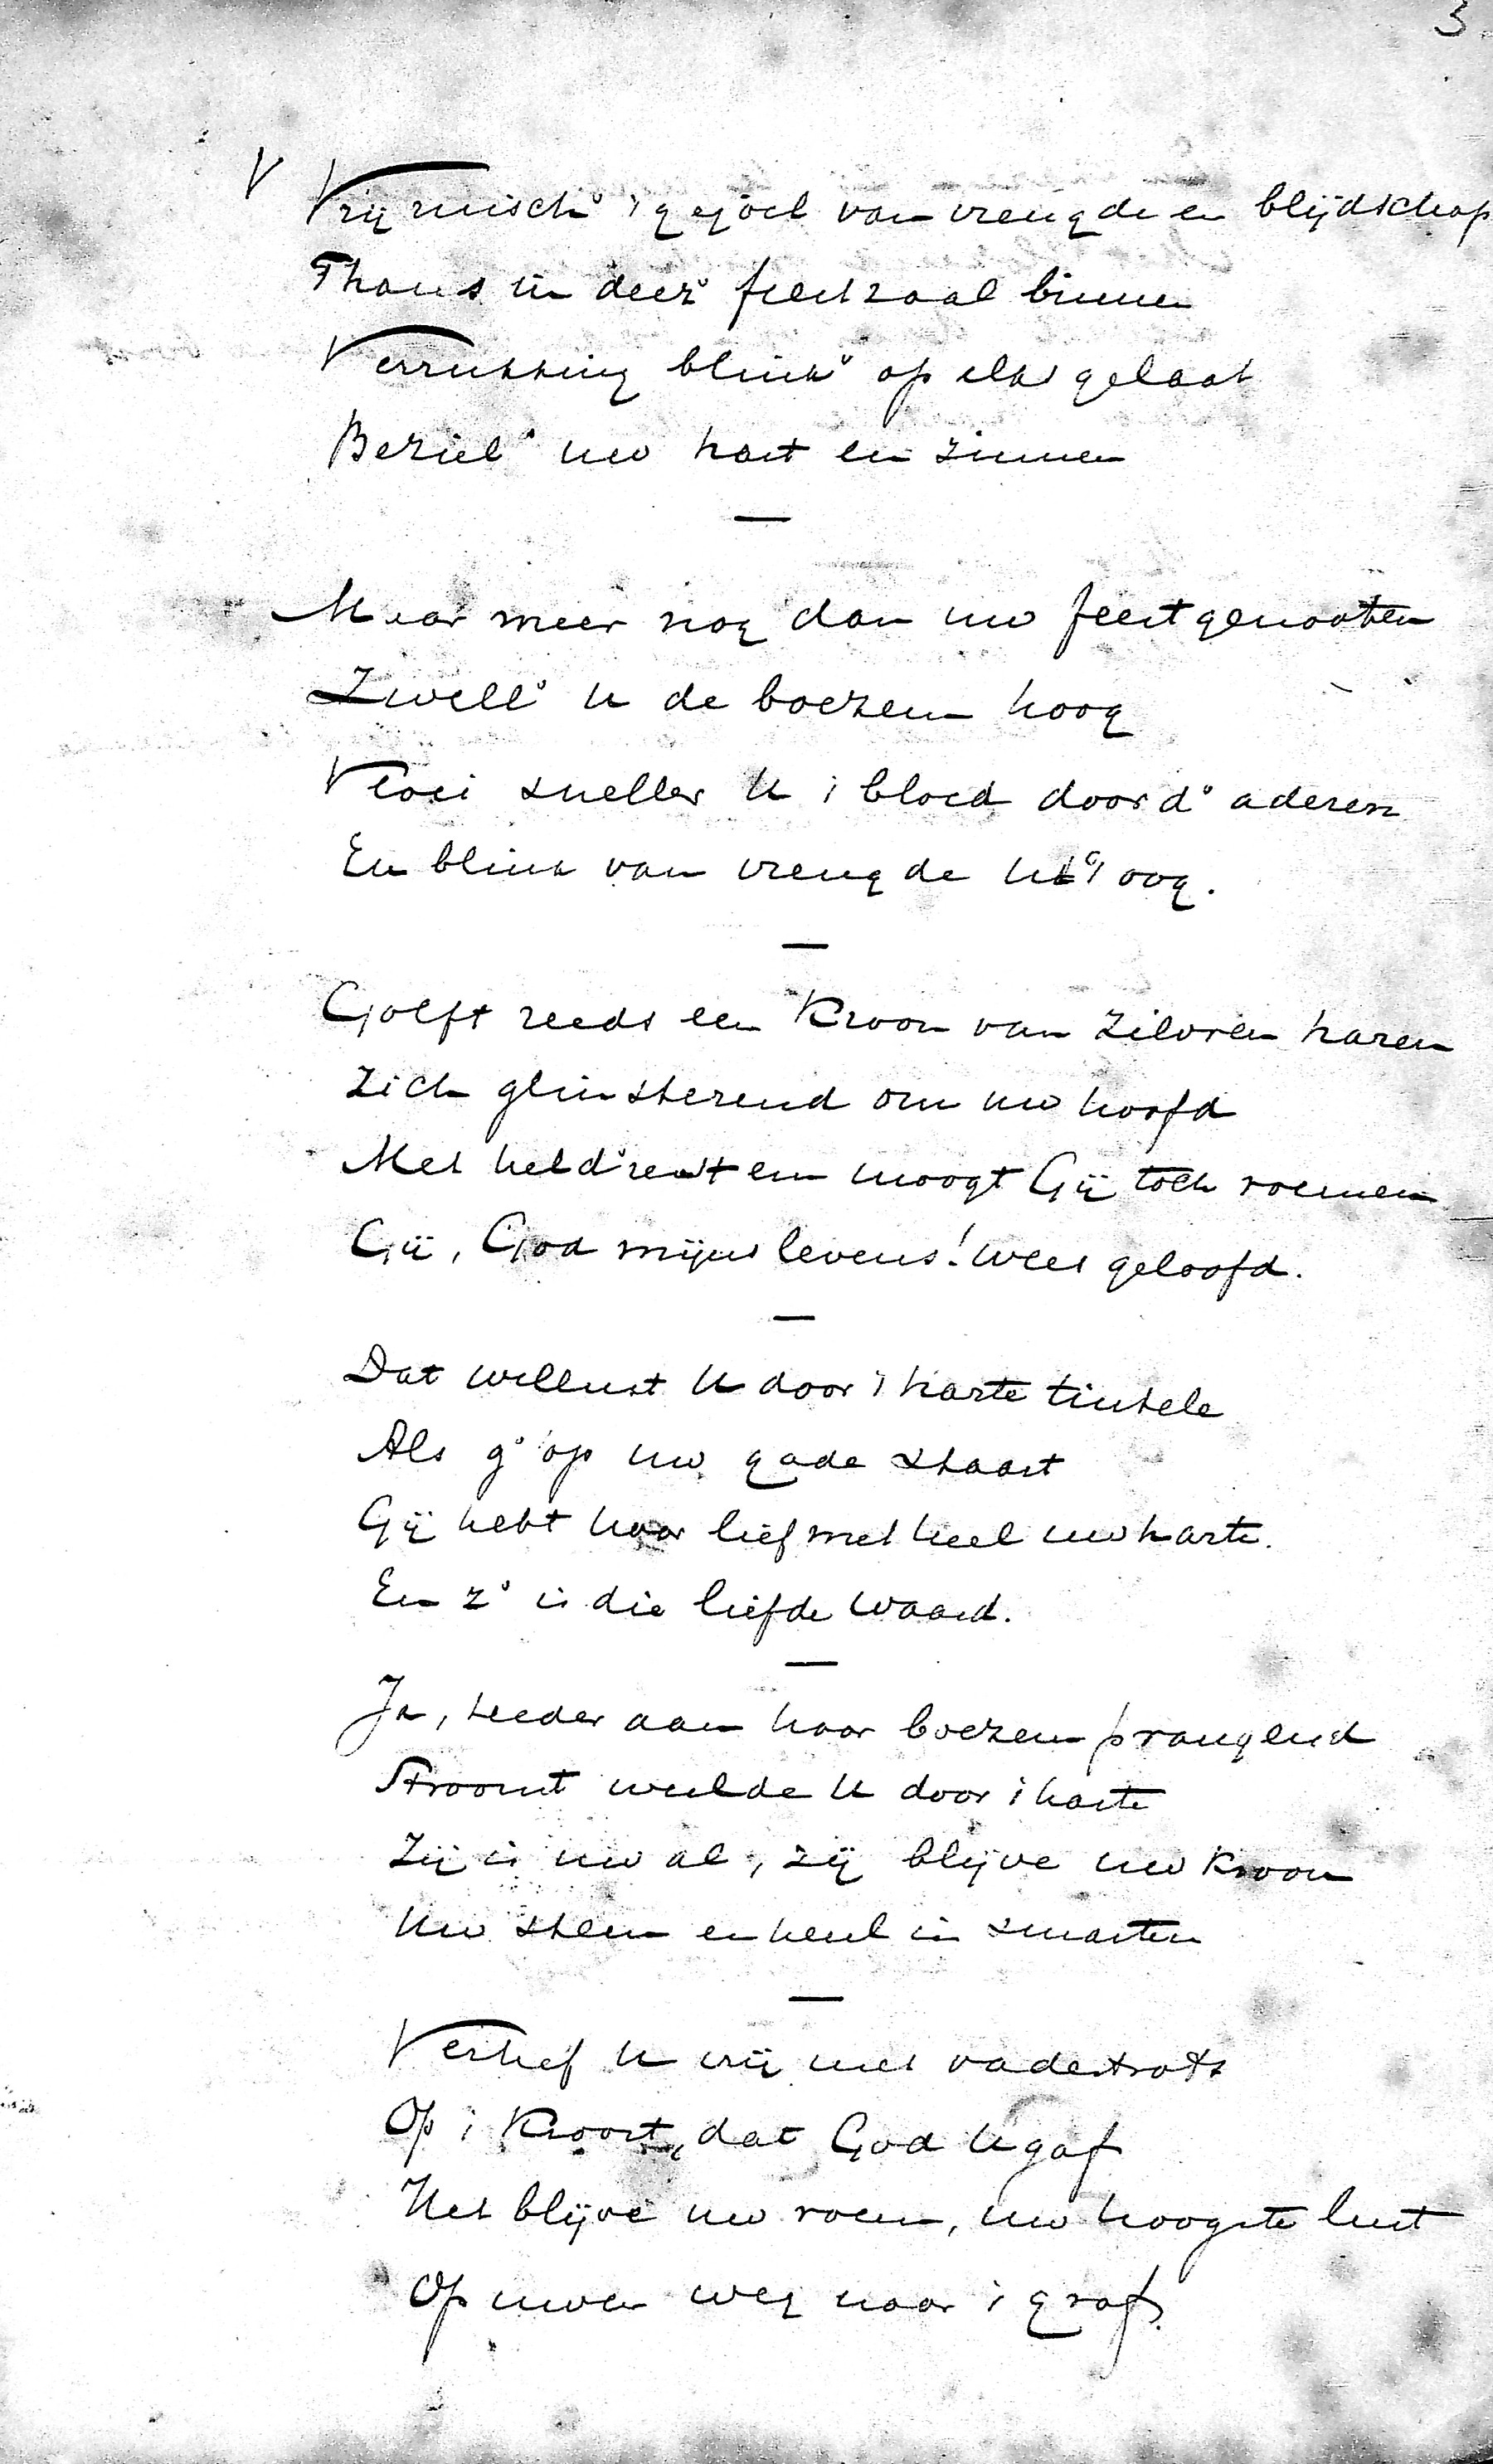 3
V Vrij ruisch' 't gejoel van vreugde en blijdschap
Thans in deez' feestzaal binnen
Verrukking blink' op elks gelaat
Beziel' uw hart en zinnen
—
Maar meer nog dan uw feestgenooten
Zwell' U de boezem hoog
Vloei sneller U 't bloed door d' aderen
En blink van vreugde U 't oog.
—
Golft reeds een Kroon van zilvren haren
Zich glinsterend om uw hoofd
Met held're stem moogt Gij toch roemen
Gij, God mijns levens! wees geloofd.
—
Dat wellust U door 't harte tintele
Als g' op uw gade staart
Gij hebt haar lief met heel uw harte.
En z' is die liefde waard.
—
Ja, teeder aan haar boezem prangend
Stroomt weelde U door 't harte
Zij is uw al, zij blijve uw Kroon
Uw steun en heul in smarten
—
Verhef U vrij met vadertrots
Op 't Kroost, dat God U gaf
Het blijve uw roem, uw hoogste lust
Op uwen weg naar 't graf.